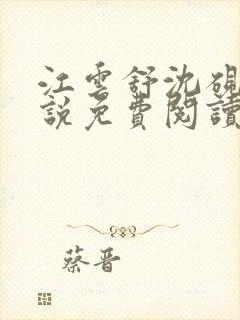 江雲舒沈硯
說免費閱讀
蔡晋